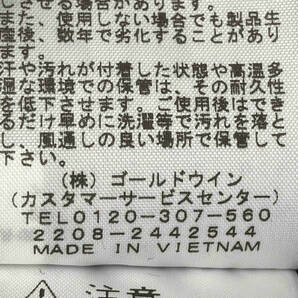 しさせる場合があります。
また、使用しない場合でも製品生
産後、数年で劣化することがあり
ます。
汗や汚れが付着した状態や高温多
湿な環境での保管は、その耐久性
を低下させます。ご使用後はでき
るだけ早めに洗濯等で汚れを落と
し、風通しの良い場所で保管して
下さい。
(株) ゴールドウイン
(カスタマーサービスセンター)
TEL0120-307-560
2208-2442544
MADE IN VIETNAM
注意